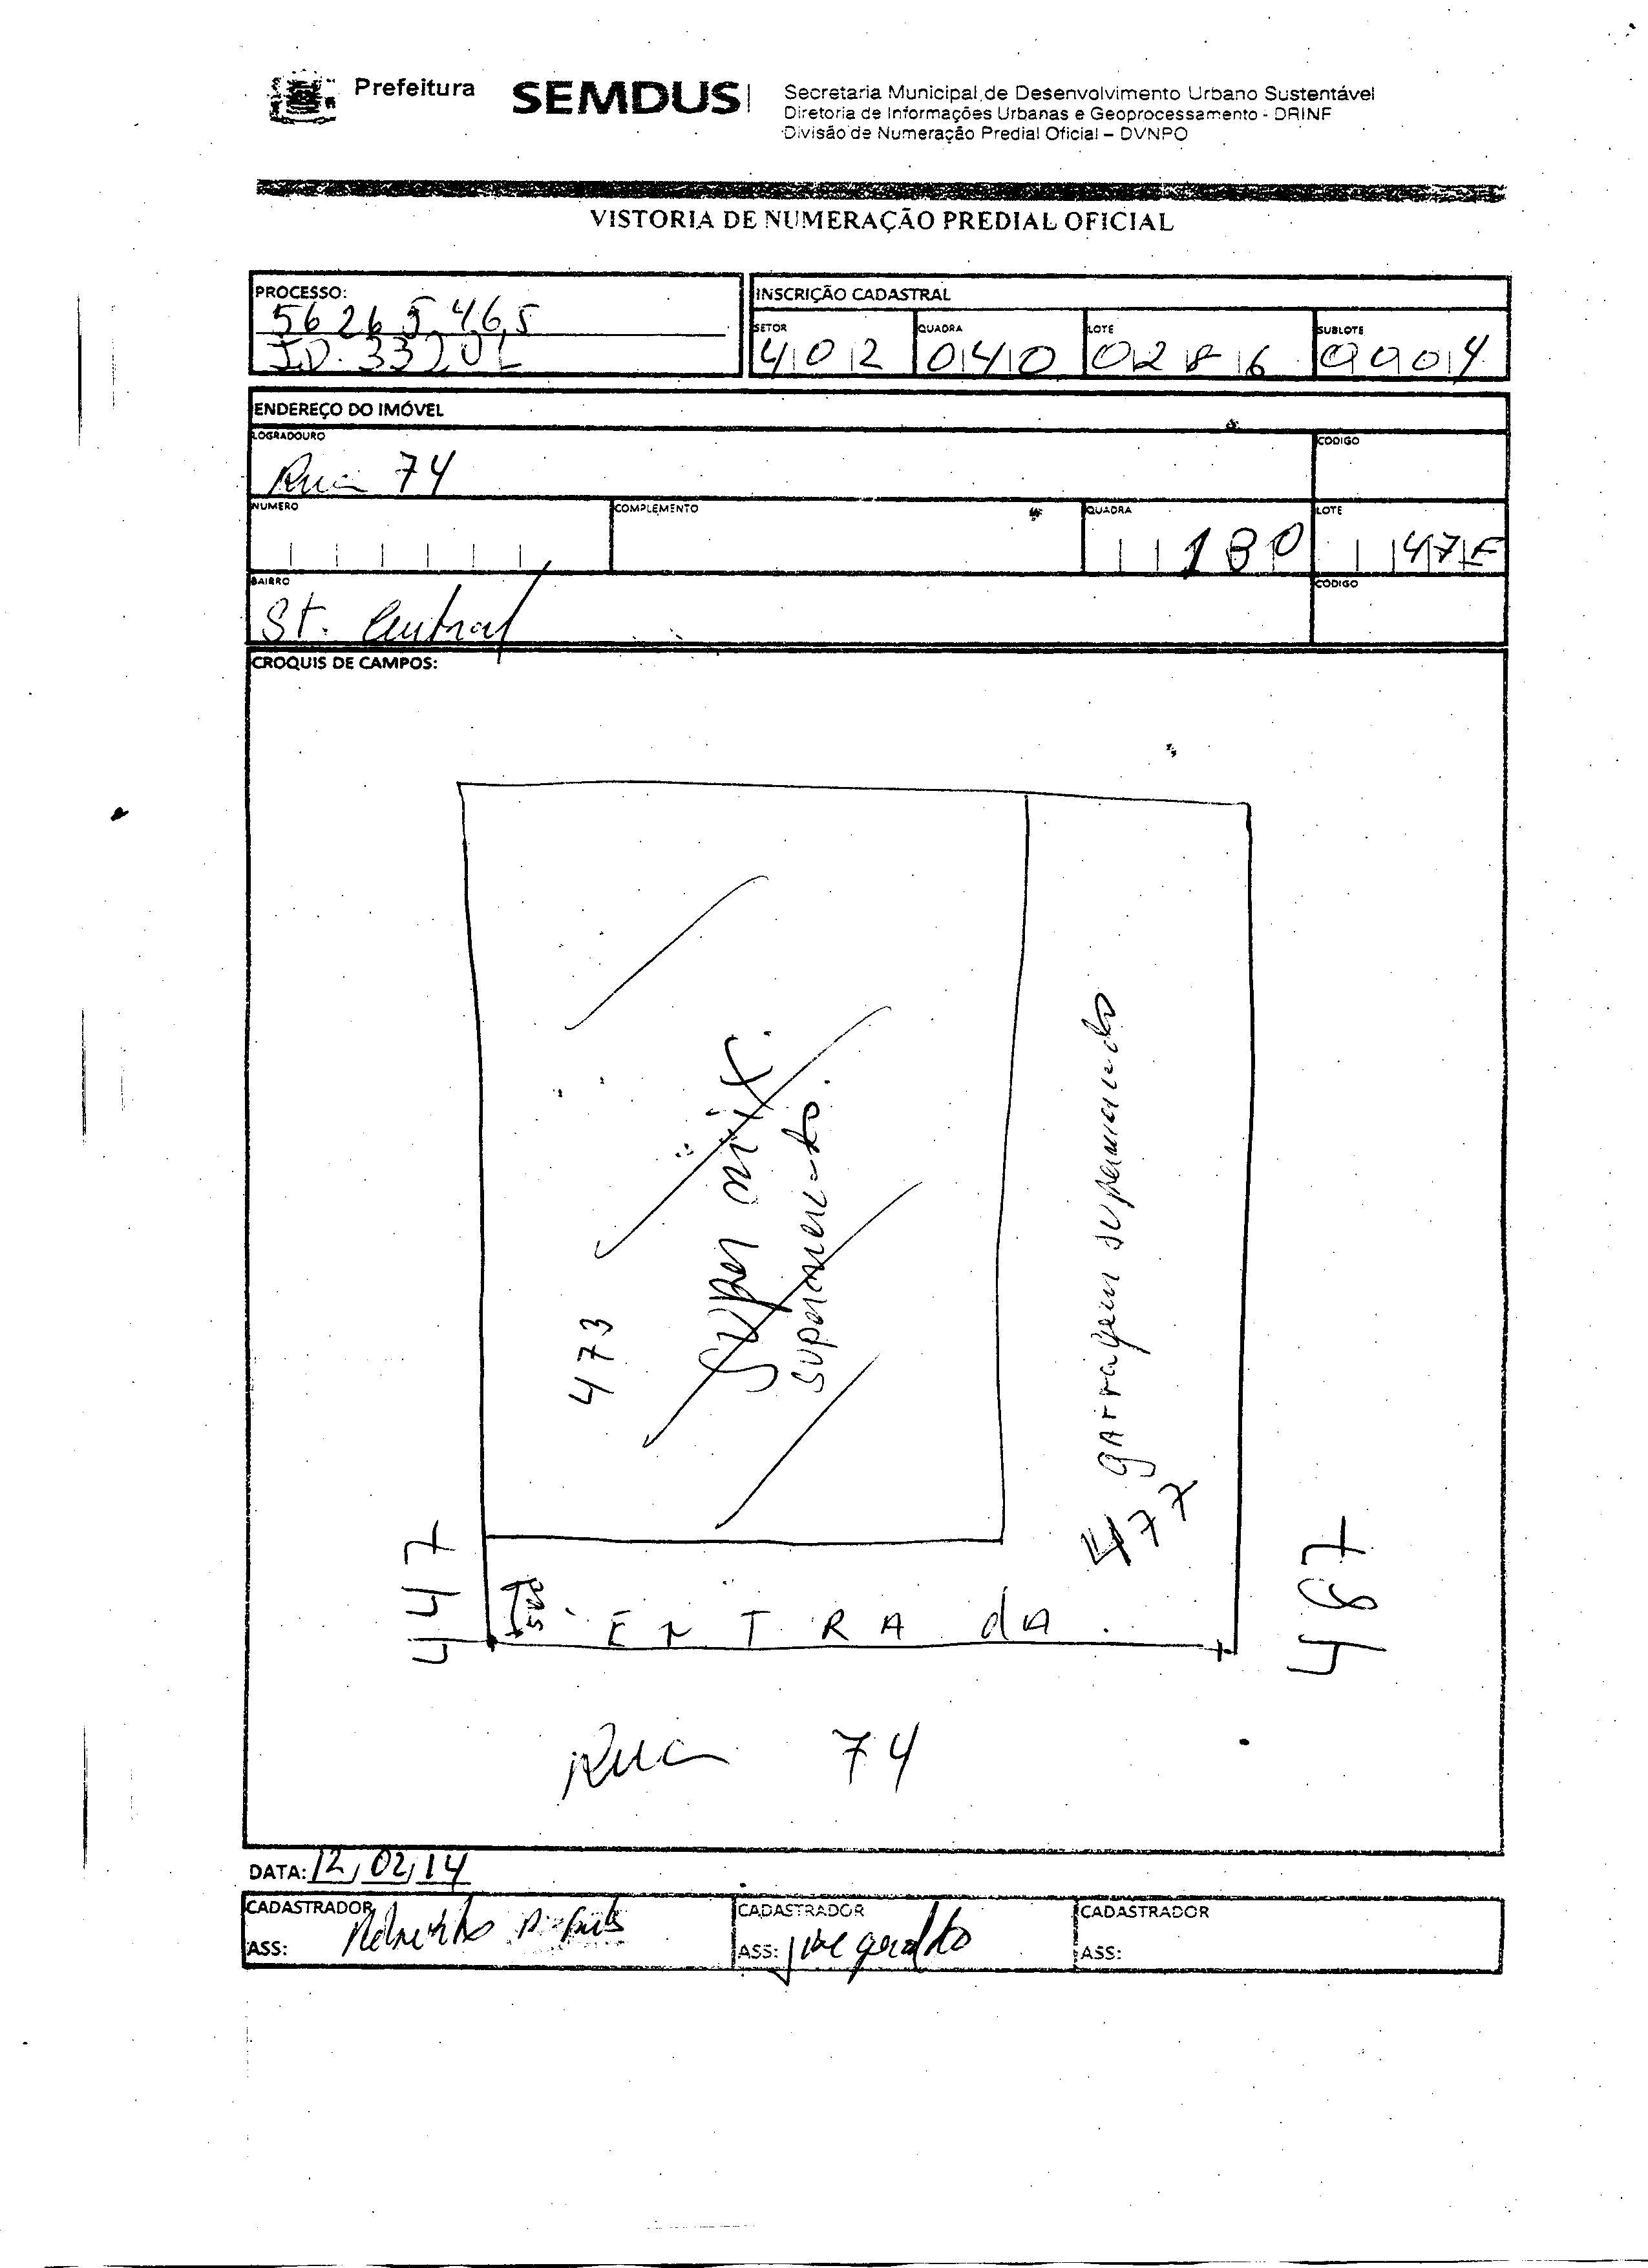 Prefeitura
SEMDUS
Secretaria Municipal de Desenvolvimento Urbano Sustentável
Diretoria de Informações Urbanas e Geoprocessamento - DRINF
Divisão de Numeração Predial Oficial – DVNPO
VISTORIA DE NUMERAÇÃO PREDIAL OFICIAL
PROCESSO:
56265465
INSCRIÇÃO CADASTRAL
SETOR QUADRA LOTE SUBLOTE
402 040 0286 0004
ENDEREÇO DO IMÓVEL
LOGRADOURO CODIGO
Rua 74
NUMERO COMPLEMENTO QUADRA LOTE
180 47E
BAIRRO CODIGO
St. Central
CROQUIS DE CAMPOS:
473
Super mix
supermercado
garragem supermercado
477
447
487
ENTRAdA
Rua 74
DATA: 12/02/14
CADASTRADOR CADASTRADOR CADASTRADOR
ASS: ASS: José geraldo ASS: